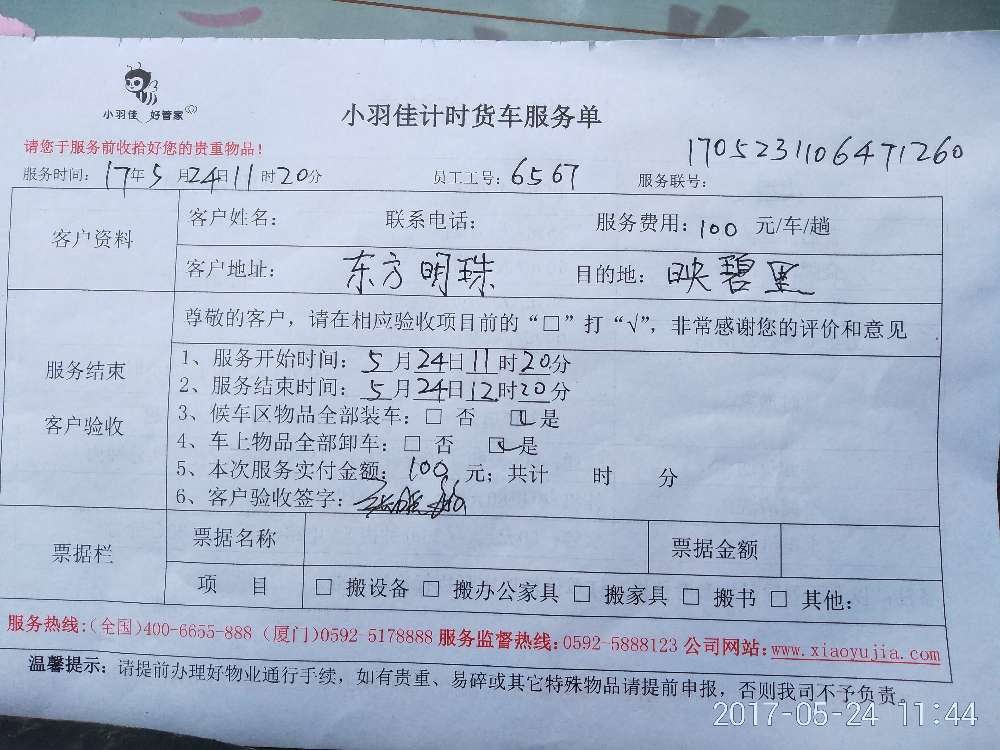 小羽佳 好管家
小羽佳计时货车服务单
请您于服务前收拾好您的贵重物品！
1705231106471260
服务时间：17年5月24日11时20分 员工工号：6567 服务联号：
客户资料
客户姓名： 联系电话： 服务费用：100 元/车/趟
客户地址： 东方明珠 目的地： 映碧里
服务结束
客户验收
尊敬的客户，请在相应验收项目前的“□”打“√”，非常感谢您的评价和意见
1、服务开始时间：5月24日11时20分
2、服务结束时间：5月24日12时20分
3、候车区物品全部装车：□ 否 ☑是
4、车上物品全部卸车：□ 否 ☑是
5、本次服务实付金额：100 元；共计 时 分
6、客户验收签字：
票据栏
票据名称 票据金额
项 目 □ 搬设备 □ 搬办公家具 □ 搬家具 □ 搬书 □ 其他：
服务热线:(全国)400-6655-888 (厦门)0592-5178888 服务监督热线:0592-5888123 公司网站:www.xiaoyujia.com
温馨提示：请提前办理好物业通行手续，如有贵重、易碎或其它特殊物品请提前申报，否则我司不予负责。
2017-05-24 11:44